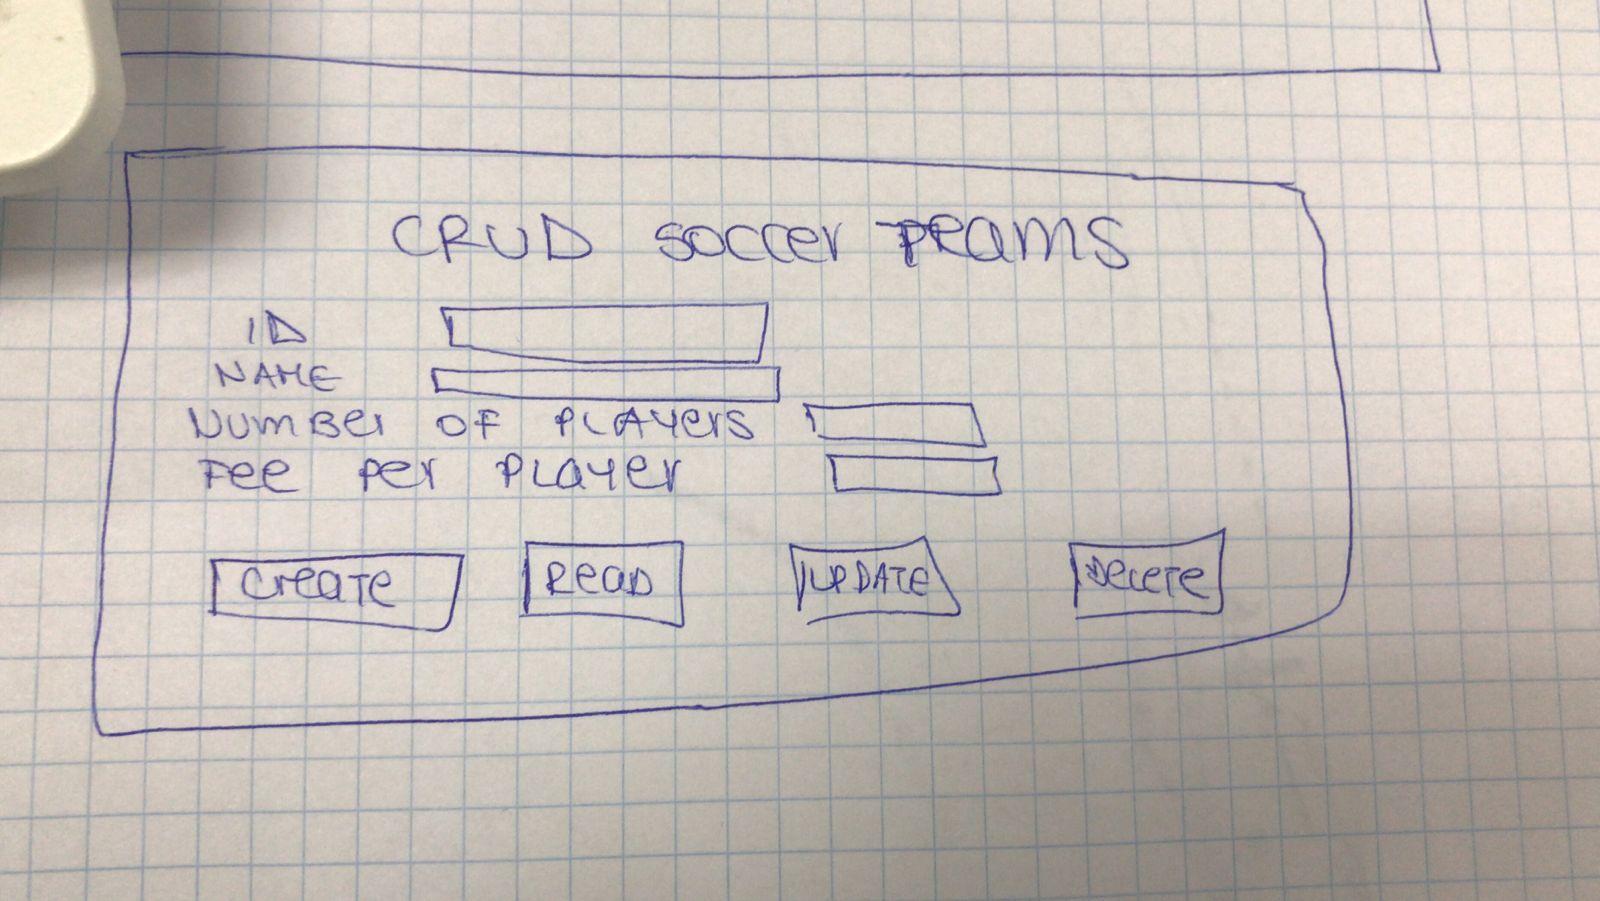 CRUD soccer Teams
ID
NAME
Number of Players
Fee Per Player
Create
Read
UPDATE
Delete